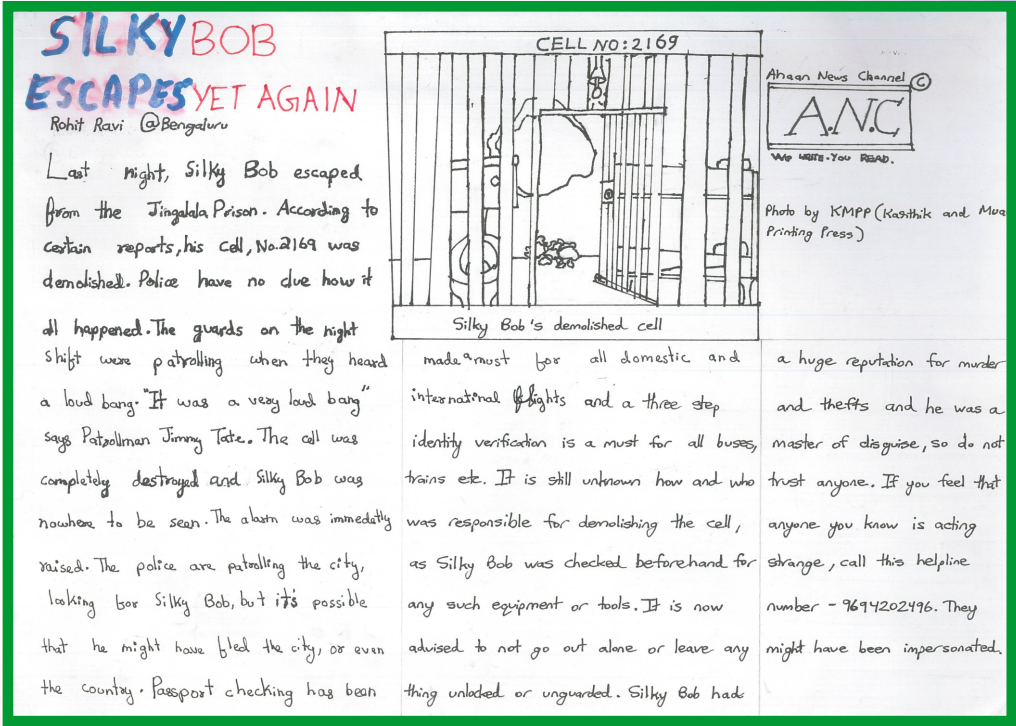 SILKY BOB
ESCAPES YET AGAIN
Rohit Ravi @Bengaluru
Last night, Silky Bob escaped
from the Jingalala Prison. According to
certain reports, his cell, No.2169 was
demolished. Police have no clue how it
all happened. The guards on the night
shift were patrolling when they heard
a loud bang. "It was a very loud bang"
says Patrollman Jimmy Tate. The cell was
completely destroyed and Silky Bob was
nowhere to be seen. The alarm was immedetly
raised. The police are patrolling the city,
looking for Silky Bob, but it's possible
that he might have fled the city, or even
the country. Passport checking has been
CELL NO:2169
Silky Bob's demolished cell
made a must for all domestic and
international flights and a three step
identity verification is a must for all buses,
trains etc. It is still unknown how and who
was responsible for demolishing the cell,
as Silky Bob was checked beforehand for
any such equipment or tools. It is now
advised to not go out alone or leave any
thing unlocked or unguarded. Silky Bob had
Ahaan News Channel ©
A.N.C
WE WRITE. YOU READ.
Photo by KMPP (Kasithik and Mua
Printing Press)
a huge reputation for murder
and thefts and he was a
master of disguise, so do not
trust anyone. If you feel that
anyone you know is acting
strange, call this helpline
number - 9694202496. They
might have been impersonated.